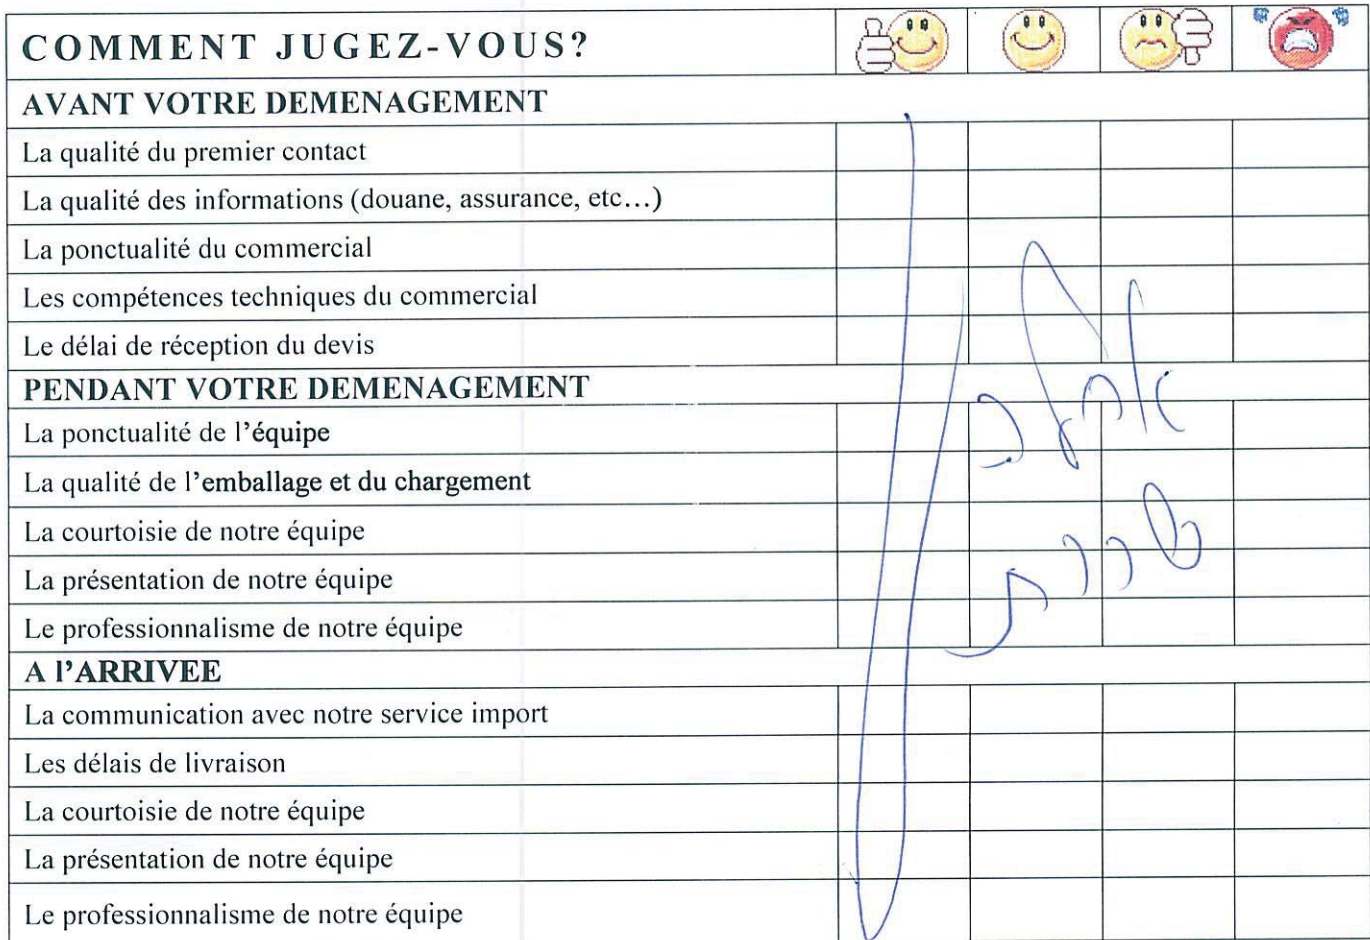 COMMENT JUGEZ-VOUS?
AVANT VOTRE DEMENAGEMENT
La qualité du premier contact
La qualité des informations (douane, assurance, etc…)
La ponctualité du commercial
Les compétences techniques du commercial
Le délai de réception du devis
PENDANT VOTRE DEMENAGEMENT
La ponctualité de l’équipe
אחלה
La qualité de l’emballage et du chargement
La courtoisie de notre équipe
שרות
La présentation de notre équipe
Le professionnalisme de notre équipe
A l’ARRIVEE
La communication avec notre service import
Les délais de livraison
La courtoisie de notre équipe
La présentation de notre équipe
Le professionnalisme de notre équipe